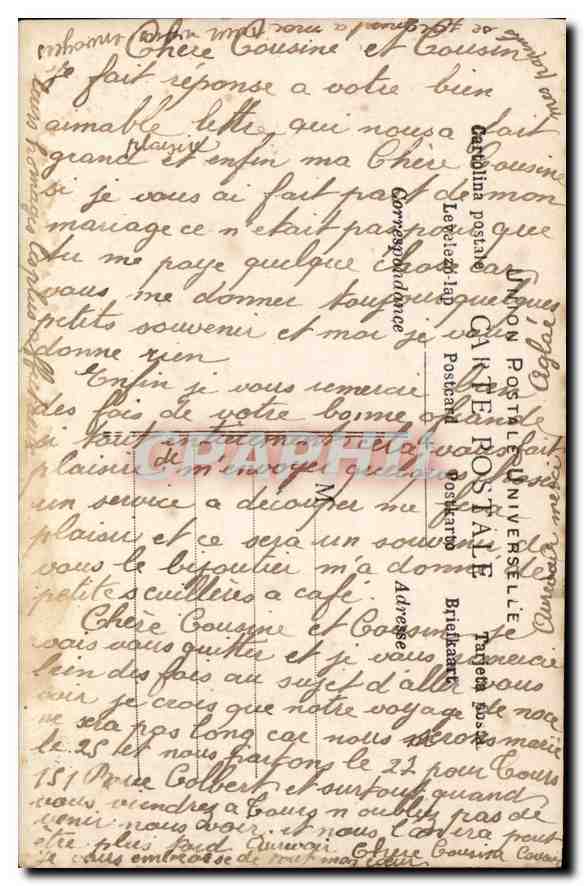 Chère Cousine et Cousin
Je fait réponse a votre bien
aimable lettre qui nous a fait
grand plaisir et enfin ma Chère Cousine
si je vous ai fait part de mon
mariage ce n'etait pas pour que
tu me paye quelque chose car
vous me donner toujours quelques
petits souvenir et moi je vous
donne rien
Enfin je vous remercie bien
des fois de votre bonne offrande
si tout entierement cela vous fait
plaisir de m'envoyer quelque chose
un service a decouper me fera
plaisir et ce sera un souvenir de
vous le bijoutier m'a donne de
petites cuillères a café.
Chère Cousine et Cousin Je
vais vous quitter et je vous remercie
bien des fois au sujet d'aller vous
voir je crois que notre voyage de noce
ne sera pas long car nous serons marié
le 25 et nous partons le 27 pour Tours
151 Rue Colbert et surtout quand
vous viendrez a Tours n'oubliez pas de
venir nous voir et nous l'on ira peut
être plus tard Aurevoir Chère Cousine
Je vous embrasse de tout mon cœur
UNION POSTALE UNIVERSELLE
CARTE POSTALE
Cartolina postale
Tarjeta posta
Levelező-lap
Postcard
Postkarto
Briefkaart
Correspondance
Adresse
M
CPAPHIL